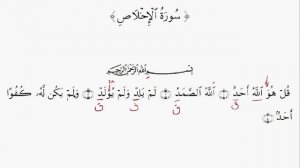 ﴿ سُورَةُ الْإِخْلَاصِ ﴾
بِسْمِ اللَّهِ الرَّحْمَٰنِ الرَّحِيمِ
قُلْ هُوَ ٱللَّهُ أَحَدٌ ۝ ٱللَّهُ ٱلصَّمَدُ ۝ لَمْ يَلِدْ وَلَمْ يُولَدْ ۝ وَلَمْ يَكُن لَّهُۥ كُفُوًا
ق ق ق ق
أَحَدٌۢ ۝